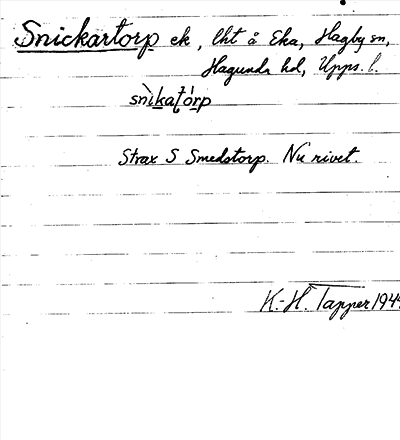 Snickartorp ek, lht å Eka, Hagby sn,
Hagunda hd, Upps. l.
snìkatórp
Strax S Smedstorp. Nu rivet.
K.-H. Tapper 194